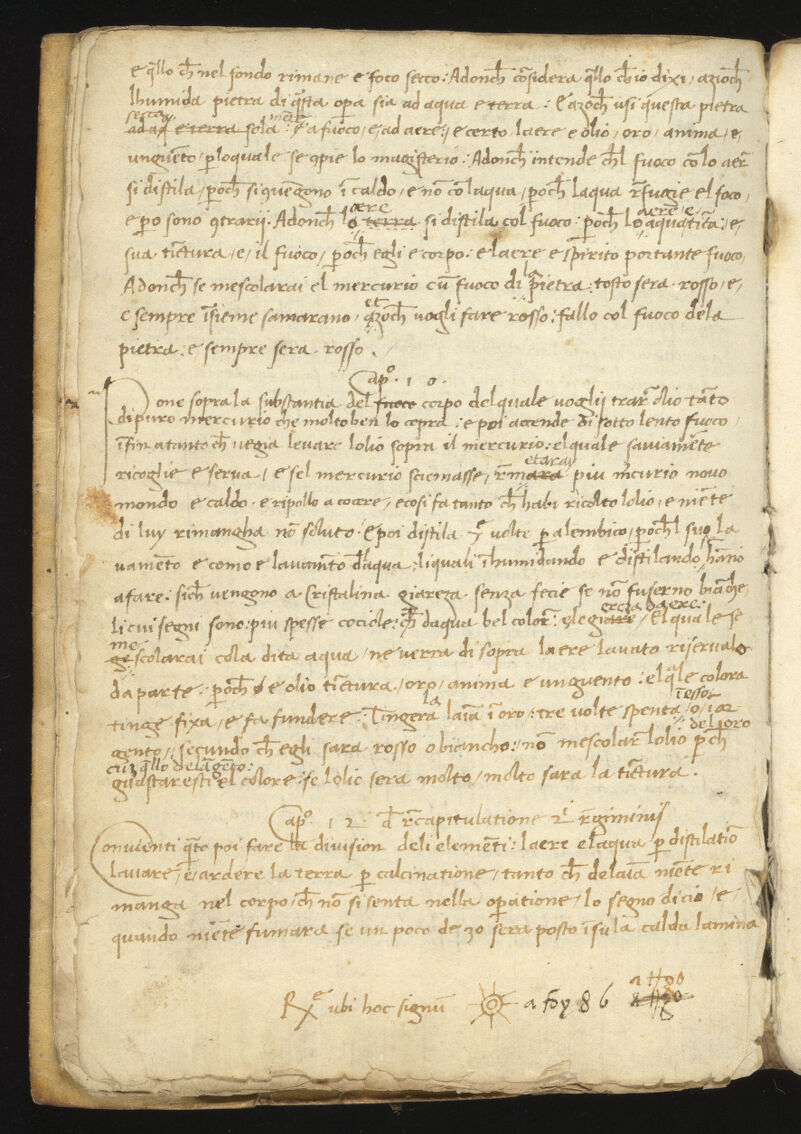 e q̃llo ch̃ nel fondo rimane e foco secco: Adonch̃ cõsidera q̃llo ch̃ io dixi, azioch̃
lhumida pietra di q̃sta opa sia ad aqua e terra: E azoch̃ usi questa pietra
secca
ad aq̃ e terra sola: e a fuoco, e, ad aere:, e certo laere e olio, oro, anima, e,
unguẽto, p loquale se 9pie lo magisterio: Adonch̃ intende ch̃l fuoco cõ lo aer̃
si distila, poch̃ si 9uẽgono ĩ caldo, e nõ cõ laqua, poch̃ laqua r̃fugie el foco,
aere aere e
e po sono 9trarij. Adonch̃ lo terra si distila col fuoco: poch̃ lo aquaticã: e,
sua tĩctura, e, il fuoco, poch̃ egli e corpo: e laere e spirito portante fuoco,
Adonch̃ se mescolarai el mercurio cũ fuoco di la pietra: tosto sera rosso, e,
e sempre ĩsieme samarano, et q̃zoch̃ vogli fare rosso: fallo col fuoco dela
pietra: e sempre sera rosso.
Cap.º 1 0.
Pone sopra la substantia del fuoco corpo del quale vogli trar̃ olio tãto
di puro mercurio che molto ben lo copra: e poi accende di sotto lento fuoco,
ĩfin a tanto ch̃ vegia levare lolio sopra il mercurio: el quale saviamẽte
etarai
ricoglie e serva, e sel mercurio sciemasse, r̃mara piu m̃curio novo
mondo e caldo. e ripollo a cocere, e cosi fa tanto ch̃ habi ricolto lolio, e niẽte
di luy rimangha nõ soluto. E poi distila volte p alembico, poch̃l suo la
vamẽto e como e lavamẽto dl̃aqua: li quali ĩhumidando e distilando, hãno
a fare: sich̃ vengono a Cristalina giareza senza fecie se nõ fuserno biãche,
li cui segni sono: piu spesse cociole: daqua bel color̃: El quale se
me
scolarai cola dita aqua, ne verra di sopra laere lavato riservalo
da parte: poch̃ e olio tĩctura, oro, anima e unguento: el q̃le colora
tinge fixa, e fa fundere: Tingera la laĩa ĩ oro: tre volte spenta ĩ esso, o, ĩ ar
gento, secundo ch̃ egli sara rosso o biancho:, nõ mescolar̃ lolio del oro
cũ q̃llo de lar̃gẽto: pch̃
guastaresti el colore: se lolio sera molto, molto sara la tĩctura.
Cap.º 1 2 d̃ r̃capitulatione r̃giminis
Convienti q̃to poi fare la division deli elemẽti: laere e laqua p distilatiõ
lavare, e ardere la terra p calcinatione, tanto ch̃ delaĩa niẽte ri
manga nel corpo, ch̃ nõ si senta nella opatione, lo segno di cio, e,
quando niẽte fumara se un poco de 30 sera posto ĩ su la calda lamina
Rx.e ubi hoc signũ a foy 86